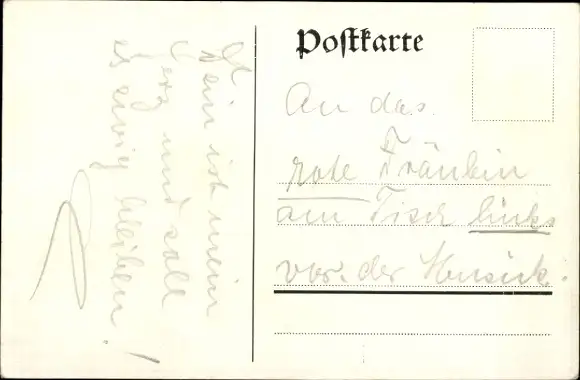 Postkarte
An das
rote Fräulein
am Tisch links
vor der Musik.
Dein ist mein
Herz und soll
es ewig bleiben!